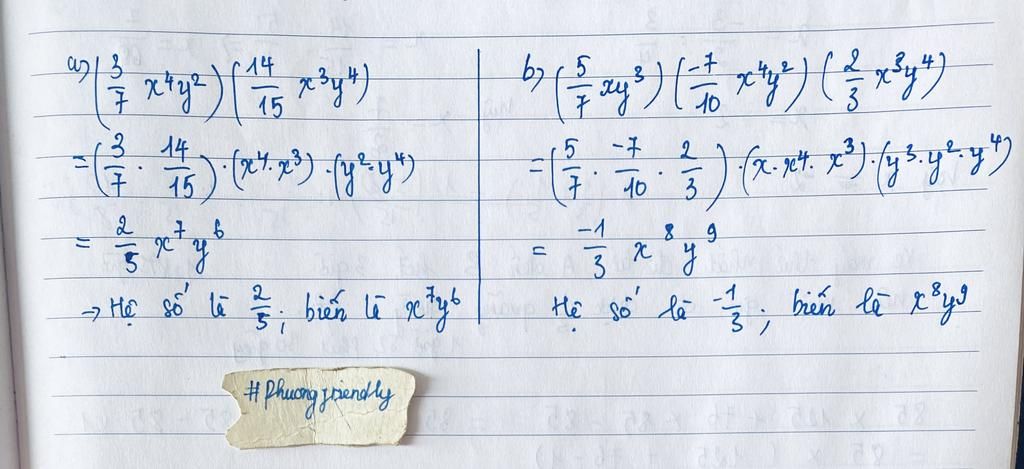 a) (3/7 x⁴y²) (14/15 x³y⁴)
= (3/7 · 14/15) · (x⁴ · x³) · (y² · y⁴)
= 2/5 x⁷y⁶
→ Hệ số là 2/5; biến là x⁷y⁶
b) (5/7 xy³) (-7/10 x⁴y²) (2/3 x³y⁴)
= (5/7 · -7/10 · 2/3) · (x · x⁴ · x³) · (y³ · y² · y⁴)
= -1/3 x⁸y⁹
Hệ số là -1/3; biến là x⁸y⁹
#Phuongfriendly